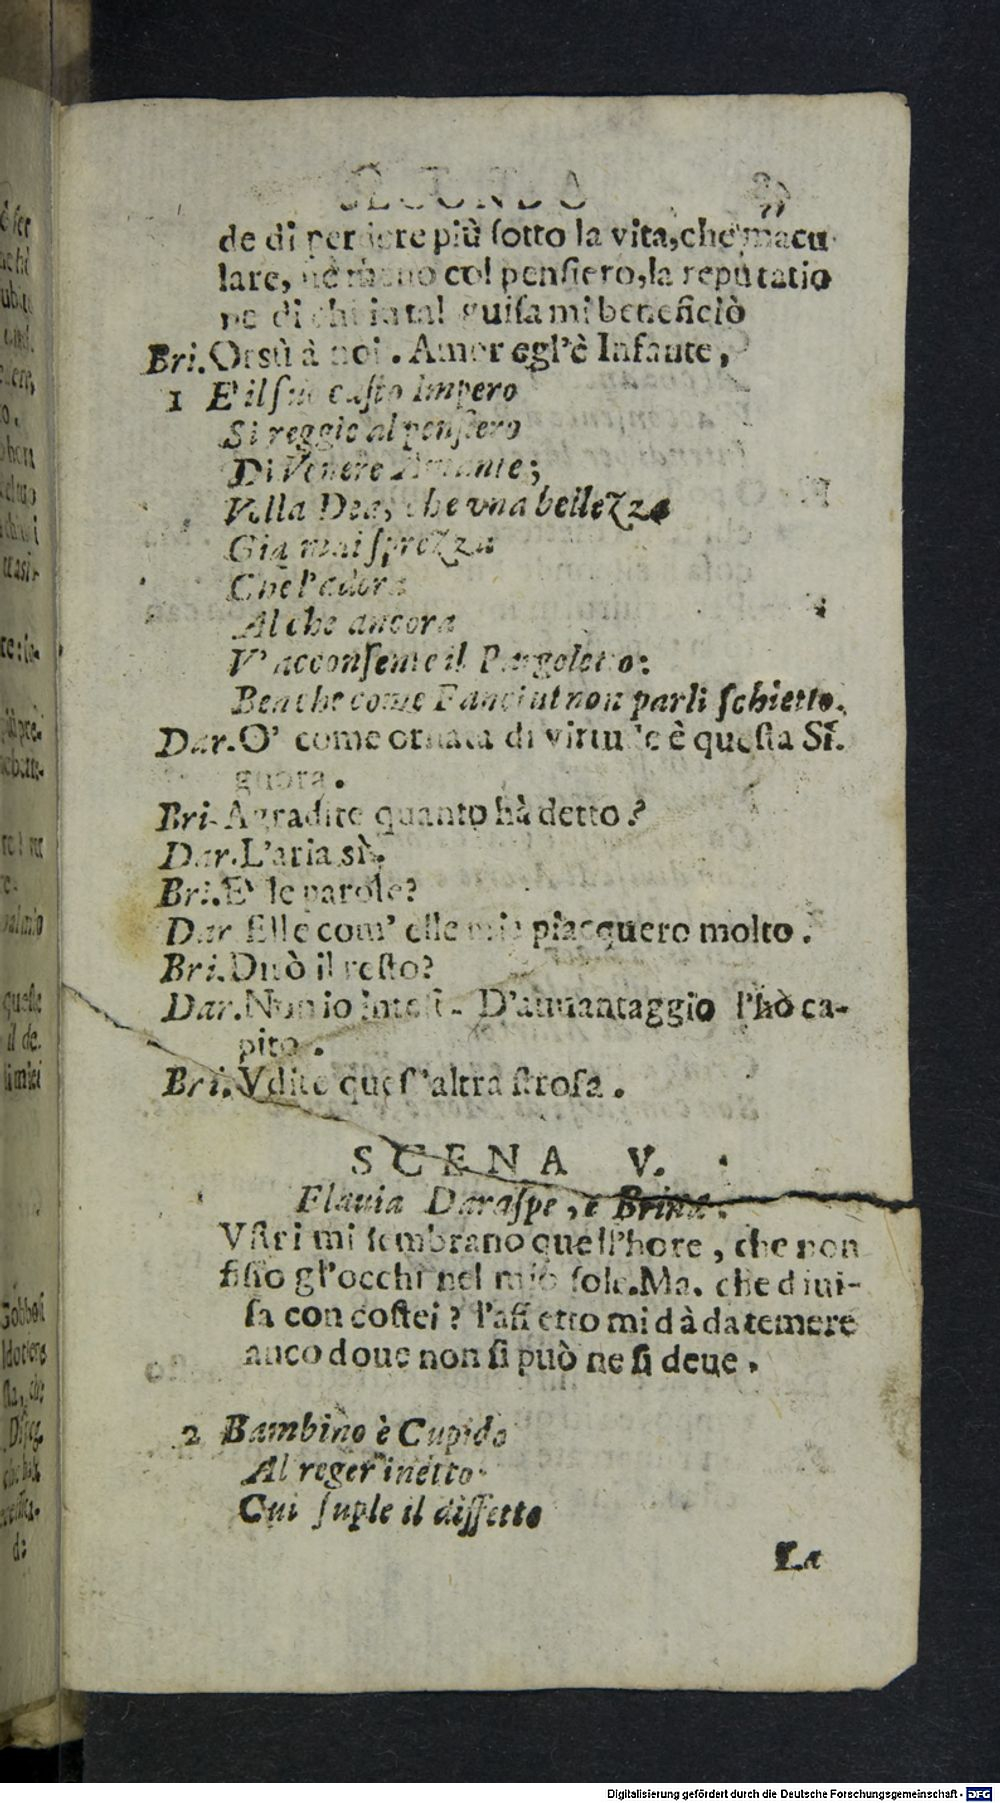 SECONDO
de di perdere più sotto la vita, che macu
lare, nè meno col pensiero, la reputatio
ne di chi in tal guisa mi beneficiò
Bri. Orsù à noi. Amor egl'è Infante,
1 E il suo casto Impero
Si reggie al pensiero
Di Venere Amante;
Vella Dea, che vna bellezza
Gia mai sprezza
Che l'adora
Al che ancora
V' acconsente il Pargoletto:
Benche come Fanciul non parli schietto.
Dar. O' come ornata di virtude è questa Si-
gnora.
Bri. Agradite quanto hà detto?
Dar. L'aria sì.
Bri. E le parole?
Dar. Elle com' elle mi piacquero molto.
Bri. Duò il resto?
Dar. Non io intesi. D'auuantaggio l'hò ca-
pito.
Bri. Vdite quest'altra strofa.
SCENA V.
Flauia Daraspe, e Brina.
Vstri mi sembrano quell'hore, che non
fisso gl'occhi nel mio sole. Ma. che diui-
sa con costei? l'affetto mi dà da temere
anco doue non si può ne si deue.
2 Bambino è Cupido
Al reger inetto
Cui suple il diffetto
La
Digitalisierung gefördert durch die Deutsche Forschungsgemeinschaft - DFG